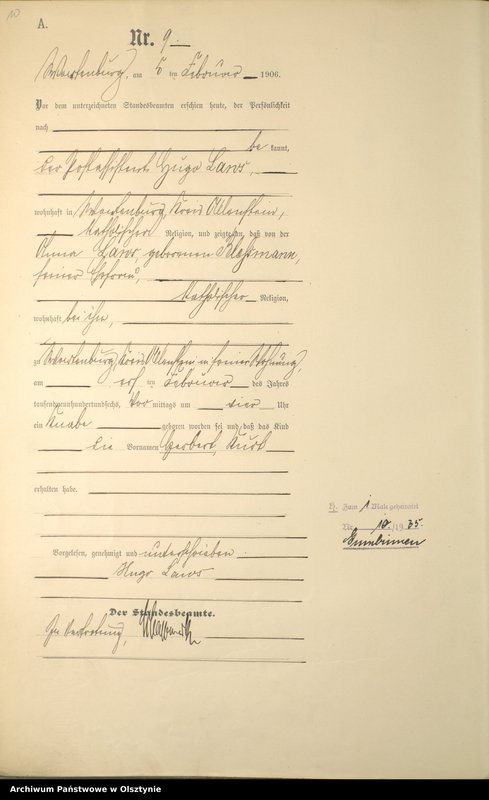 10
A.
Nr. 9
Wartenburg, am 5 ten Februar 1906.
Vor dem unterzeichneten Standesbeamten erschien heute, der Persönlichkeit
nach
be kannt,
der Postassistent Hugo Laws,
wohnhaft in Wartenburg, Kreis Allenstein,
katholischer Religion, und zeigte an, daß von der
Anna Laws, geborenen
seiner Ehefrau,
katholischer Religion,
wohnhaft bei ihm,
zu Wartenburg Kreis Allenstein in seiner Wohnung,
am ten Februar des Jahres
tausendneunhundertundsechs, Vor mittags um vier Uhr
ein Knabe geboren worden sei und daß das Kind
die Vornamen Herbert, Kurt
erhalten habe.
H. Zum 1 Male geheiratet
Nr. 10. /19 35.
Gumbinnen
Vorgelesen, genehmigt und unterschrieben
Hugo Laws
Der Standesbeamte.
In Vertretung,
Archiwum Państwowe w Olsztynie